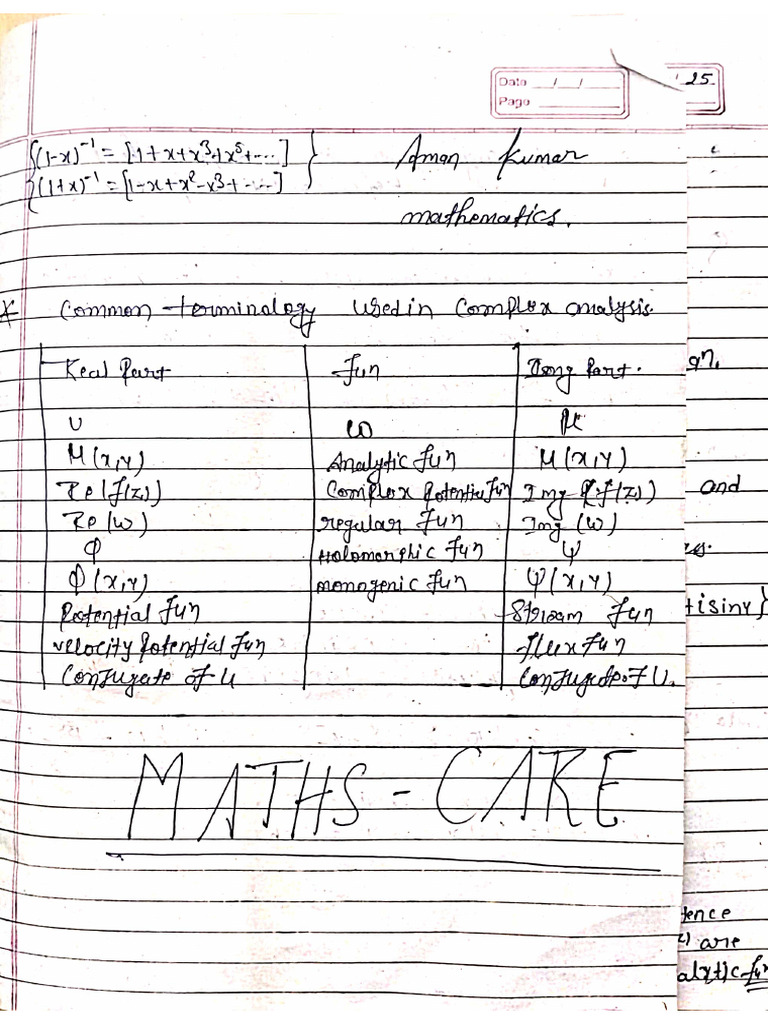 Date / /
Page
25
{(1-x)⁻¹ = [1+x+x³+x⁵+----]
{(1+x)⁻¹ = [1-x+x²-x³+----] }
Aman Kumar
mathematics.
* Common terminology used in Complex analysis.
Real Part Fun Img Part.
U W
M(x,y) Analytic Fun M(x,y)
Re(f(z)) Complex Potential Fun Img (f(z))
Re(w) regular Fun Img (w)
φ Holomorphic Fun ψ
φ(x,y) monogenic Fun ψ(x,y)
Potential Fun Stream Fun
velocity Potential Fun flux Fun
Conjugate of U Conjugate of U.
MATHS - CARE
and
tisiny}
are